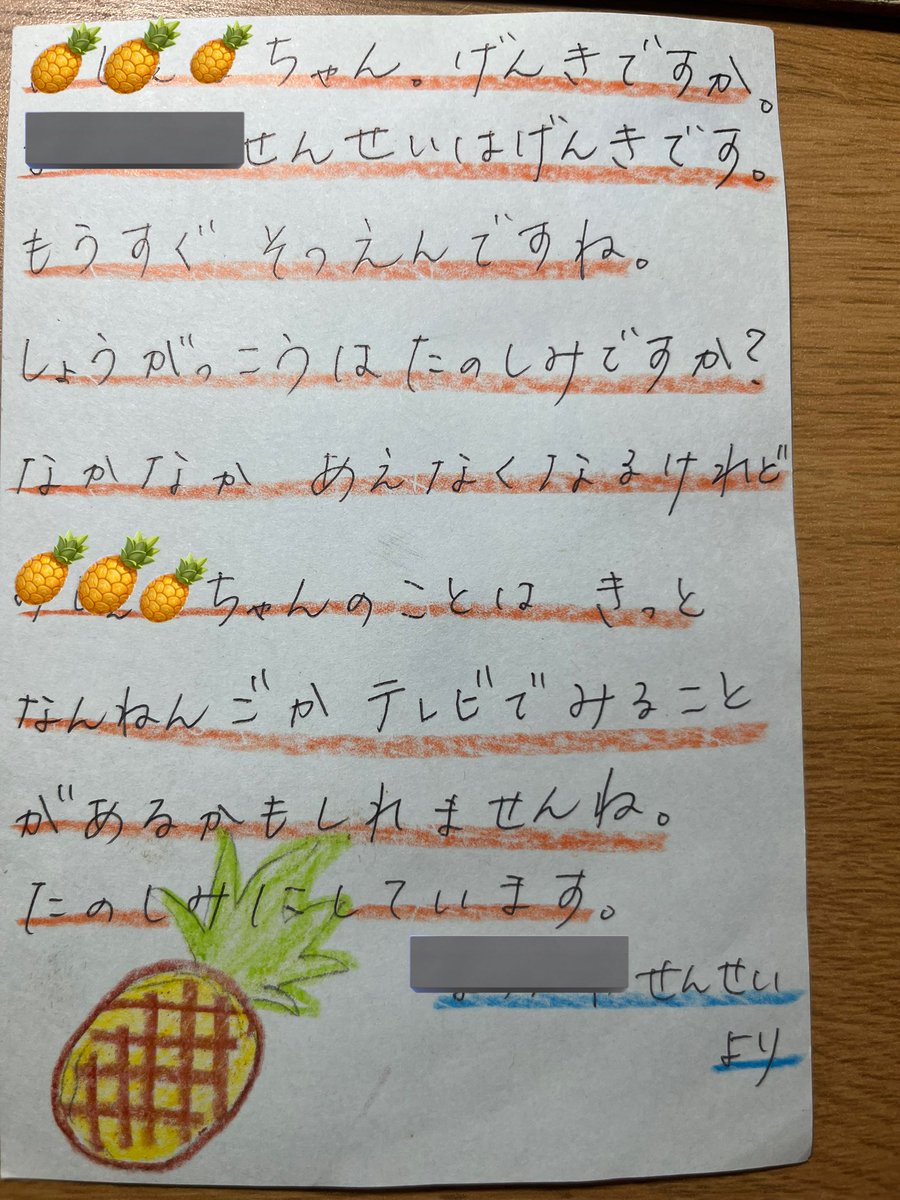 ちゃん。げんきですか。
せんせいはげんきです。
もうすぐ そつえんですね。
しょうがっこうは たのしみですか?
なかなか あえなくなるけれど
ちゃんのことは きっと
なんねんごか テレビでみること
があるかもしれませんね。
たのしみにしています。
せんせい
より